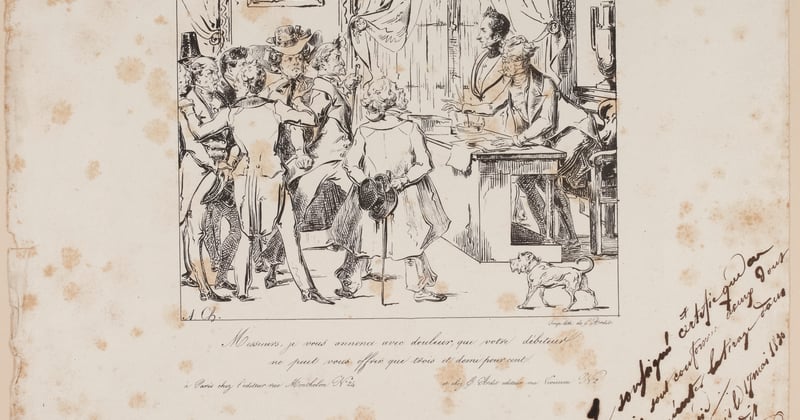 A. Ch.
Imp. lith. de V. Ardit.
Messieurs, je vous annonce avec douleur que votre débiteur
ne peut vous offrir que trois et demi pour cent.
à Paris chez l'éditeur rue Montholon N°. 24
et chez V. Ardit éditeur rue Vivienne N° 2
soussigné certifie que au
sont conforme
tirage dans
le 17 mai 1830